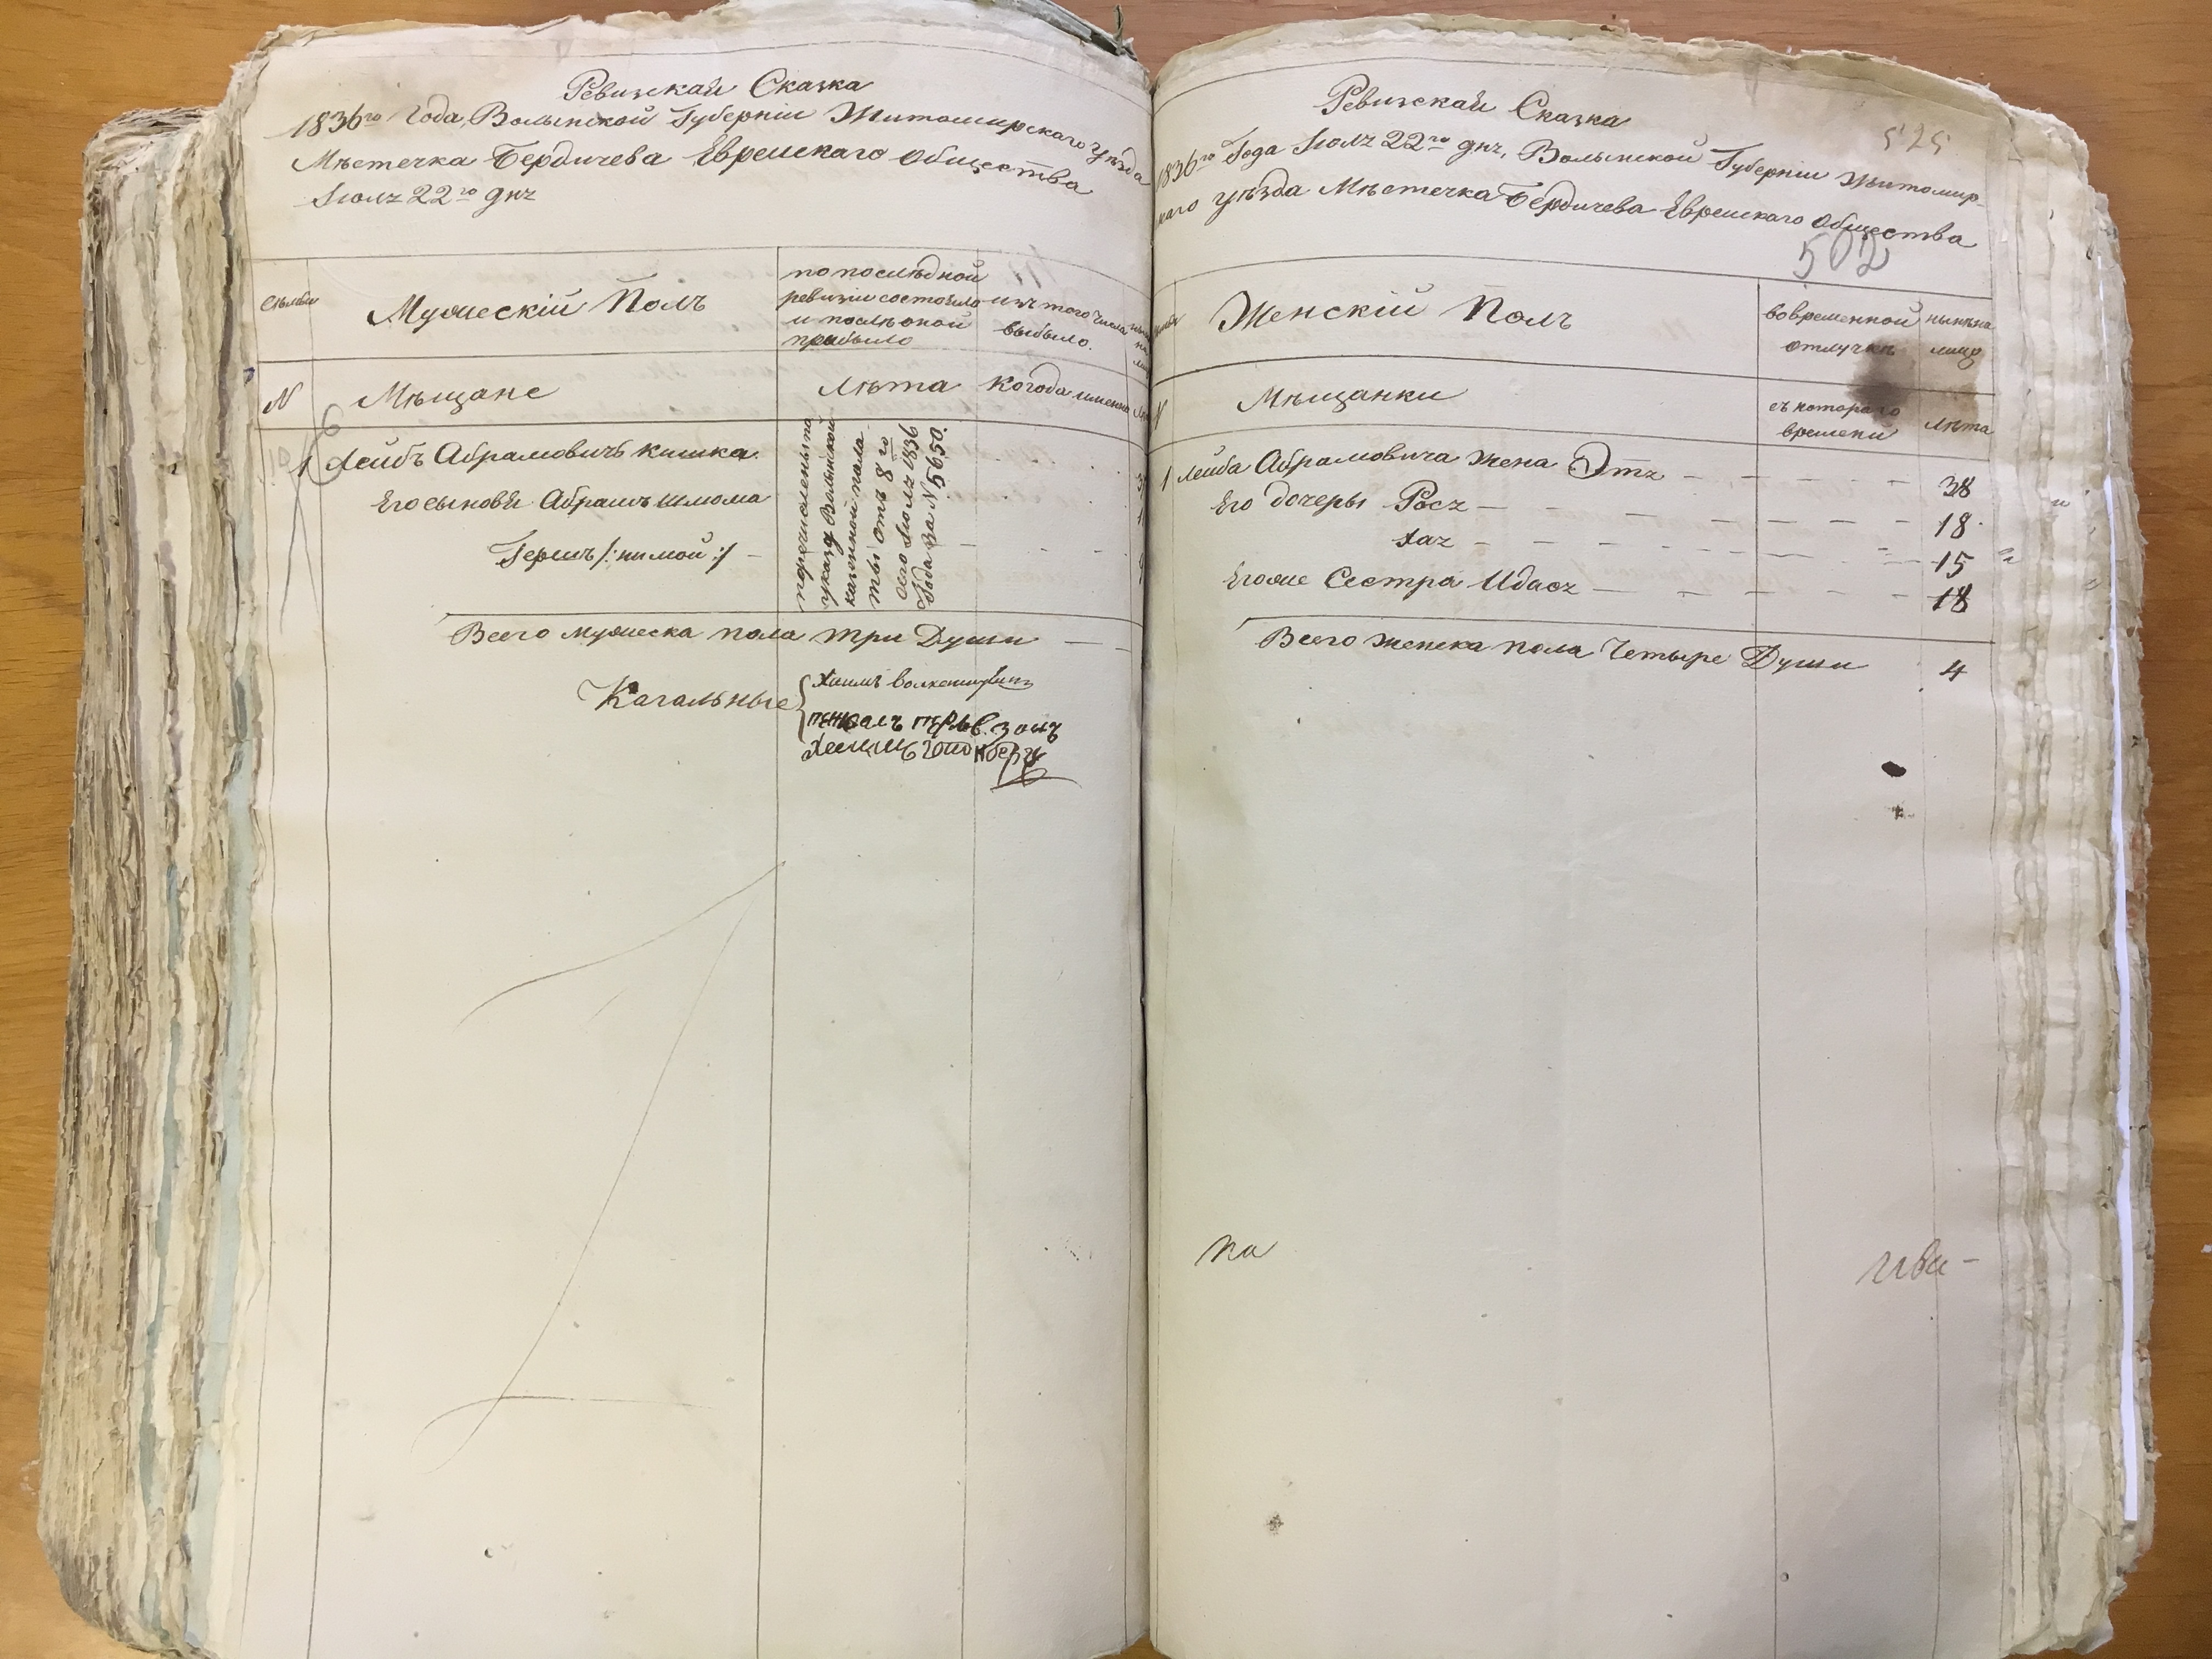 Ревизская Сказка
1836го Года, Волынской Губерніи Житомирскаго уѣзда
Мѣстечка Бердичева Еврейскаго Общества
Іюля 22го дня
по послѣдной
ревизіи состояло
и послѣ оной
прибыло
изъ того числа
выбыло.
Мужескій Полъ
N
Мѣщане
Лѣта
когода именно
1 Лейбъ Абрамовичъ Кишка
Его сыновья Абрамъ Шлома
Гершъ /: нимой :/
поречисленъ по
указу Волынской
казенной пала
ты отъ 8го
сего Іюля 1836
Года за N 5650.
Всего мужеска пола три Души
Кагальные
Хаимъ
Ревизская Сказка
525
1836го Года Іюля 22го дня, Волынской Губерніи Житомир-
скаго уѣзда Мѣстечка Бердичева Еврейскаго Общества
502
Женскій Полъ
во временной
отлучкѣ
нынѣ на
лицо
N
Мѣщанки
съ котораго
времени
Лѣта
1 Лейба Абрамовича жена Этя 38
Его дочеры Рося 18
Хая 15
Егоже Сестра Идася 18
Всего женска пола Четыре Души 4
на